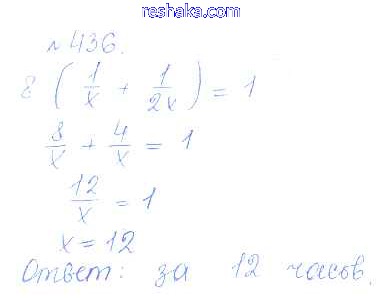 reshaka.com
№436.
8 (1/x + 1/2x) = 1
8/x + 4/x = 1
12/x = 1
x = 12
Ответ: за 12 часов.